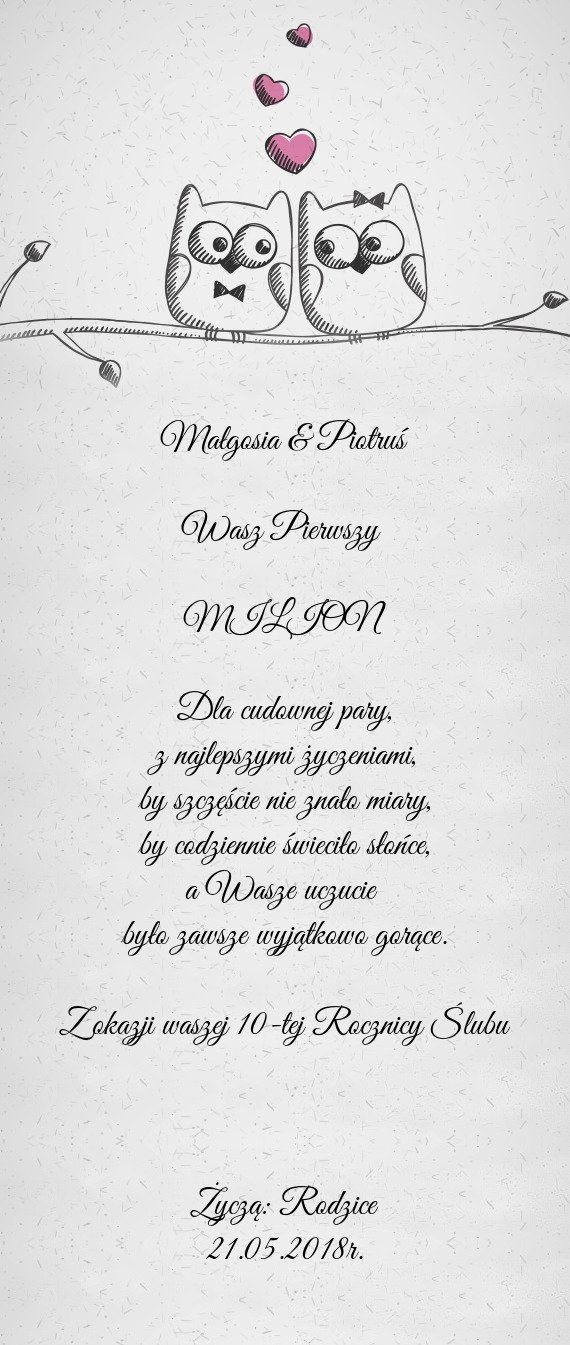 Małgosia & Piotruś
Wasz Pierwszy
MILION
Dla cudownej pary,
z najlepszymi życzeniami,
by szczęście nie znało miary,
by codziennie świeciło słońce,
a Wasze uczucie
było zawsze wyjątkowo gorące.
Zokazji waszej 10-tej Rocznicy Ślubu
Życzą: Rodzice
21.05.2018r.